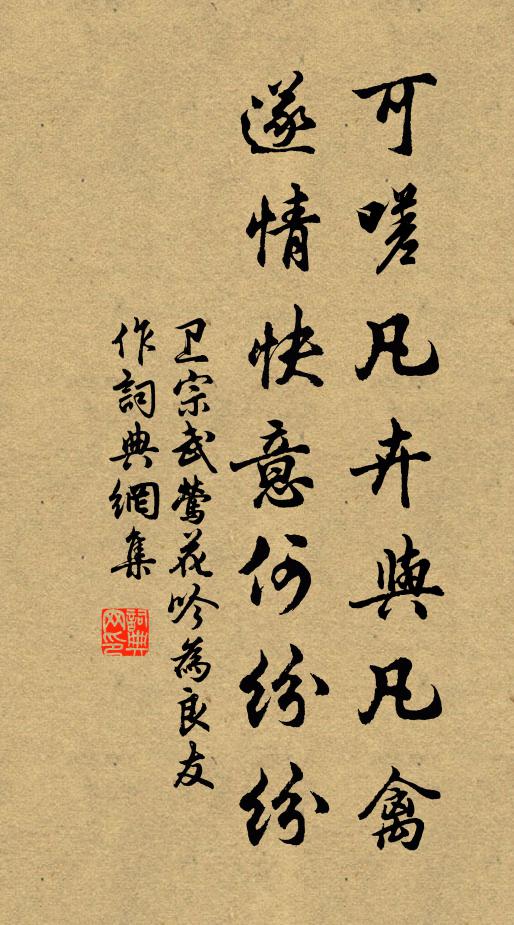 可嗟凡卉與凡禽
遂情快意何紛紛
卫宗武莺花吟為良友
作詞典網集
詞典
网印